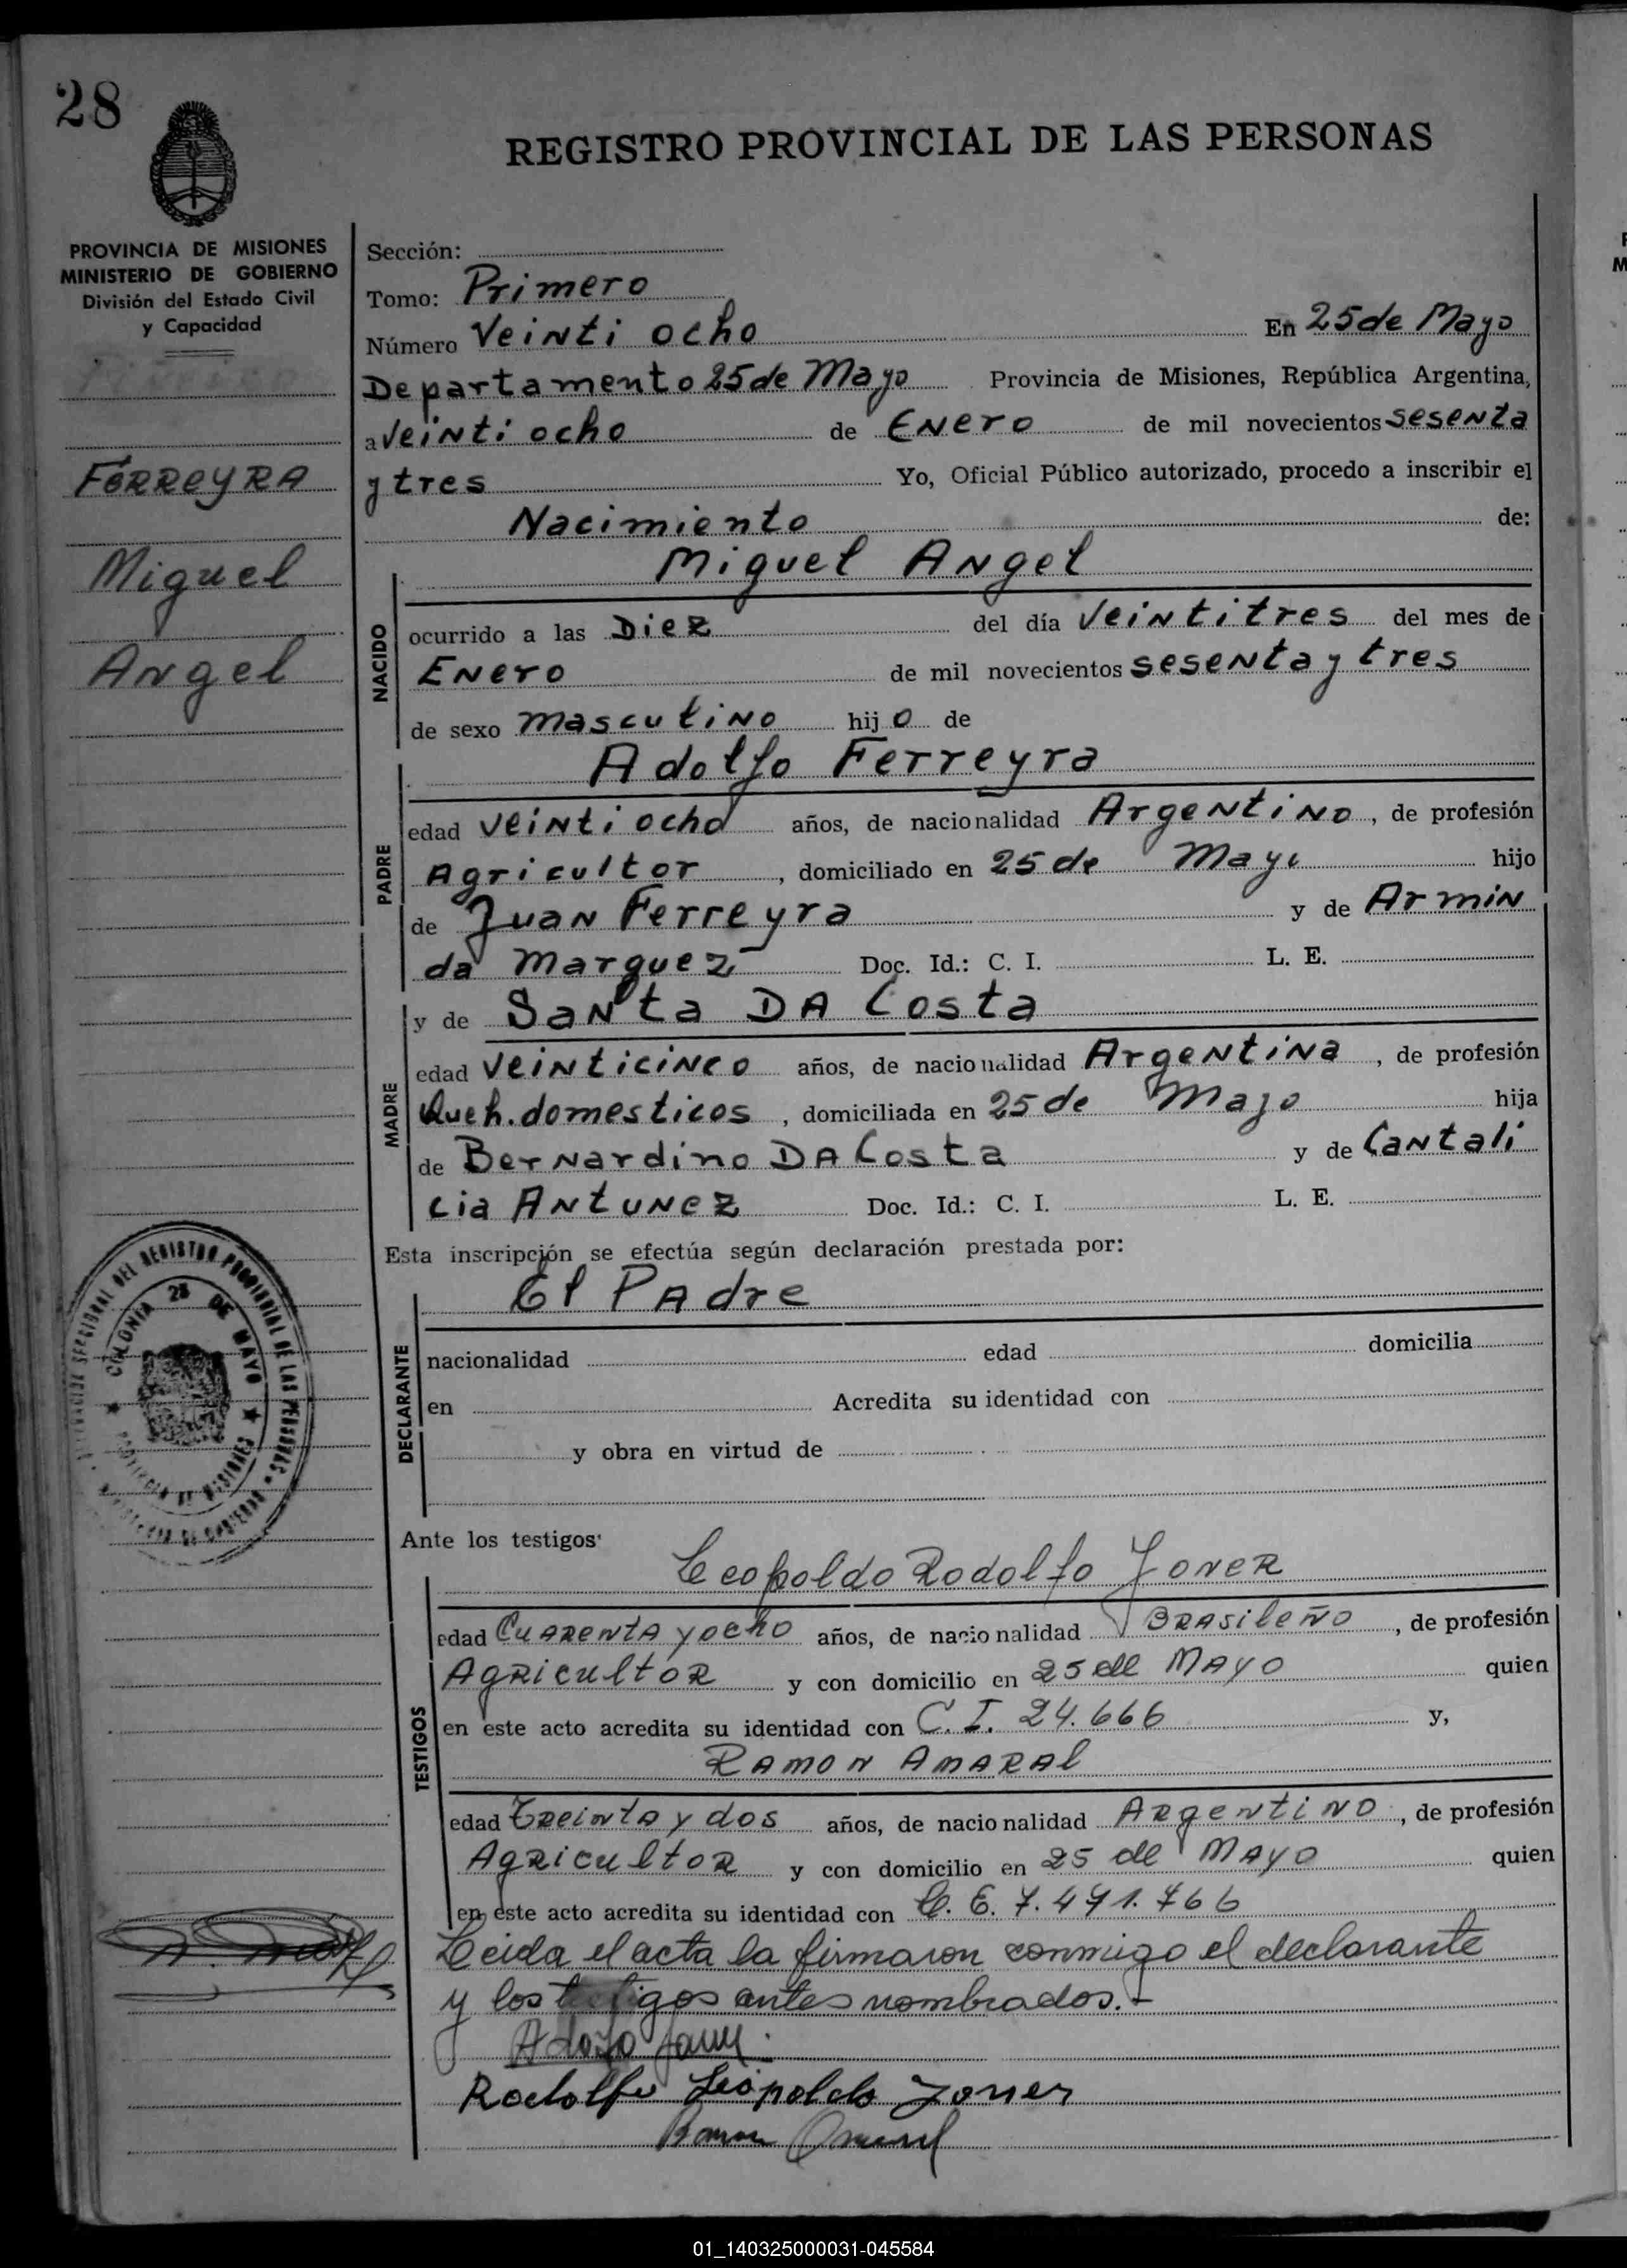 28
REGISTRO PROVINCIAL DE LAS PERSONAS
PROVINCIA DE MISIONES
MINISTERIO DE GOBIERNO
División del Estado Civil
y Capacidad
FERREYRA
Miguel
Angel
Sección:
Tomo: Primero
Número Veinti ocho En 25 de Mayo
Departamento 25 de Mayo Provincia de Misiones, República Argentina,
a Veinti ocho de Enero de mil novecientos sesenta
y tres Yo, Oficial Público autorizado, procedo a inscribir el
Nacimiento de:
Miguel Angel
NACIDO
ocurrido a las Diez del día Veintitres del mes de
Enero de mil novecientos sesenta y tres
de sexo masculino hijo de
Adolfo Ferreyra
PADRE
edad veinti ocho años, de nacionalidad Argentino, de profesión
Agricultor, domiciliado en 25 de Mayo hijo
de Juan Ferreyra y de Armin
da Marquez Doc. Id.: C. I. L. E.
y de Santa DA Costa
MADRE
edad veinticinco años, de nacionalidad Argentina, de profesión
Queh. domesticos, domiciliada en 25 de Mayo hija
de Bernardino DA Costa y de Cantali
cia Antunez Doc. Id.: C. I. L. E.
Esta inscripción se efectúa según declaración prestada por:
El Padre
DECLARANTE
nacionalidad edad domicilia
en Acredita su identidad con
y obra en virtud de
COLONIA 25 DE MAYO
PROVINCIA DE MISIONES
REGISTRO PROVINCIAL DE LAS PERSONAS
Ante los testigos:
Leopoldo Rodolfo Joner
TESTIGOS
edad Cuarenta y ocho años, de nacionalidad Brasileño, de profesión
Agricultor y con domicilio en 25 de Mayo quien
en este acto acredita su identidad con C. I. 24.666 y,
Ramon Amaral
edad Treinta y dos años, de nacionalidad Argentino, de profesión
Agricultor y con domicilio en 25 de Mayo quien
en este acto acredita su identidad con L. E. 7.491.766
Leida el acta la firmaron conmigo el declarante
y los testigos antes nombrados.-
Rodolfo Leopoldo Joner
01_140325000031-045584